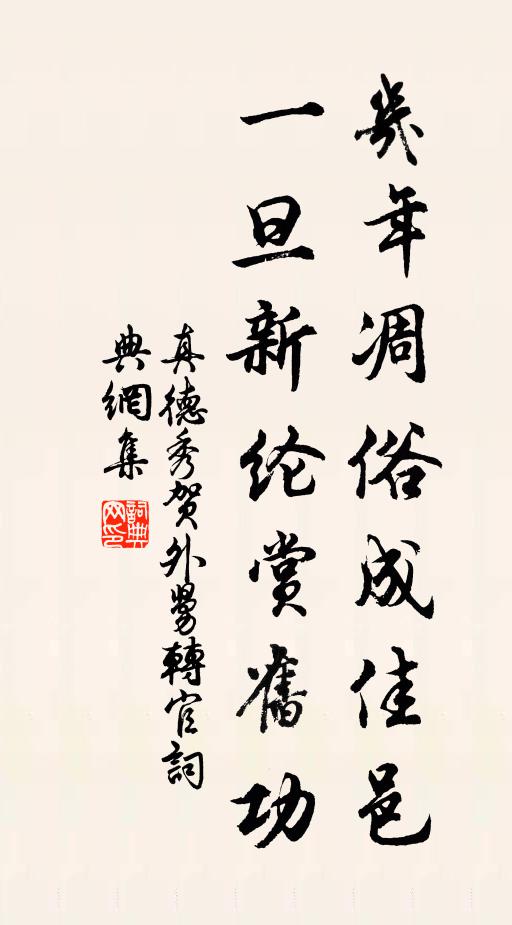 幾年凋俗成佳邑
一旦新纶賞舊功
真德秀贺外舅轉官詞
典網集
詞典网印